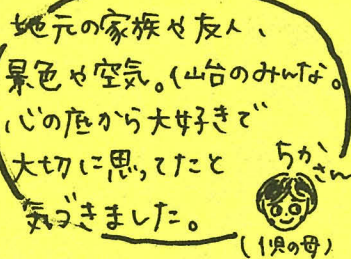 地元の家族や友人、
景色や空気。仙台のみんな。
心の底から大好きで
大切に思ってたと
気づきました。
ちか
さん
(1児の母)